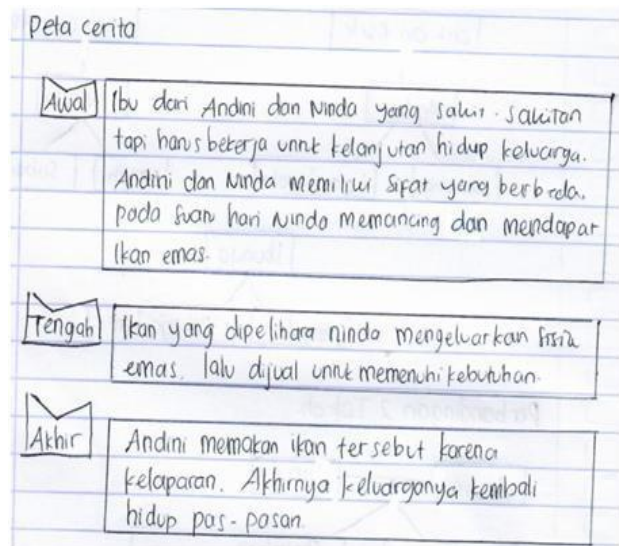 Peta cerita
Awal
Ibu dari Andini dan Ninda yang sakit-sakitan
tapi harus bekerja untuk kelanjutan hidup keluarga.
Andini dan Ninda memiliki sifat yang berbeda.
pada suatu hari Ninda memancing dan mendapat
ikan emas.
Tengah
Ikan yang dipelihara ninda mengeluarkan sisik
emas. lalu dijual untuk memenuhi kebutuhan.
Akhir
Andini memakan ikan tersebut karena
kelaparan. Akhirnya keluarganya kembali
hidup pas-pasan.